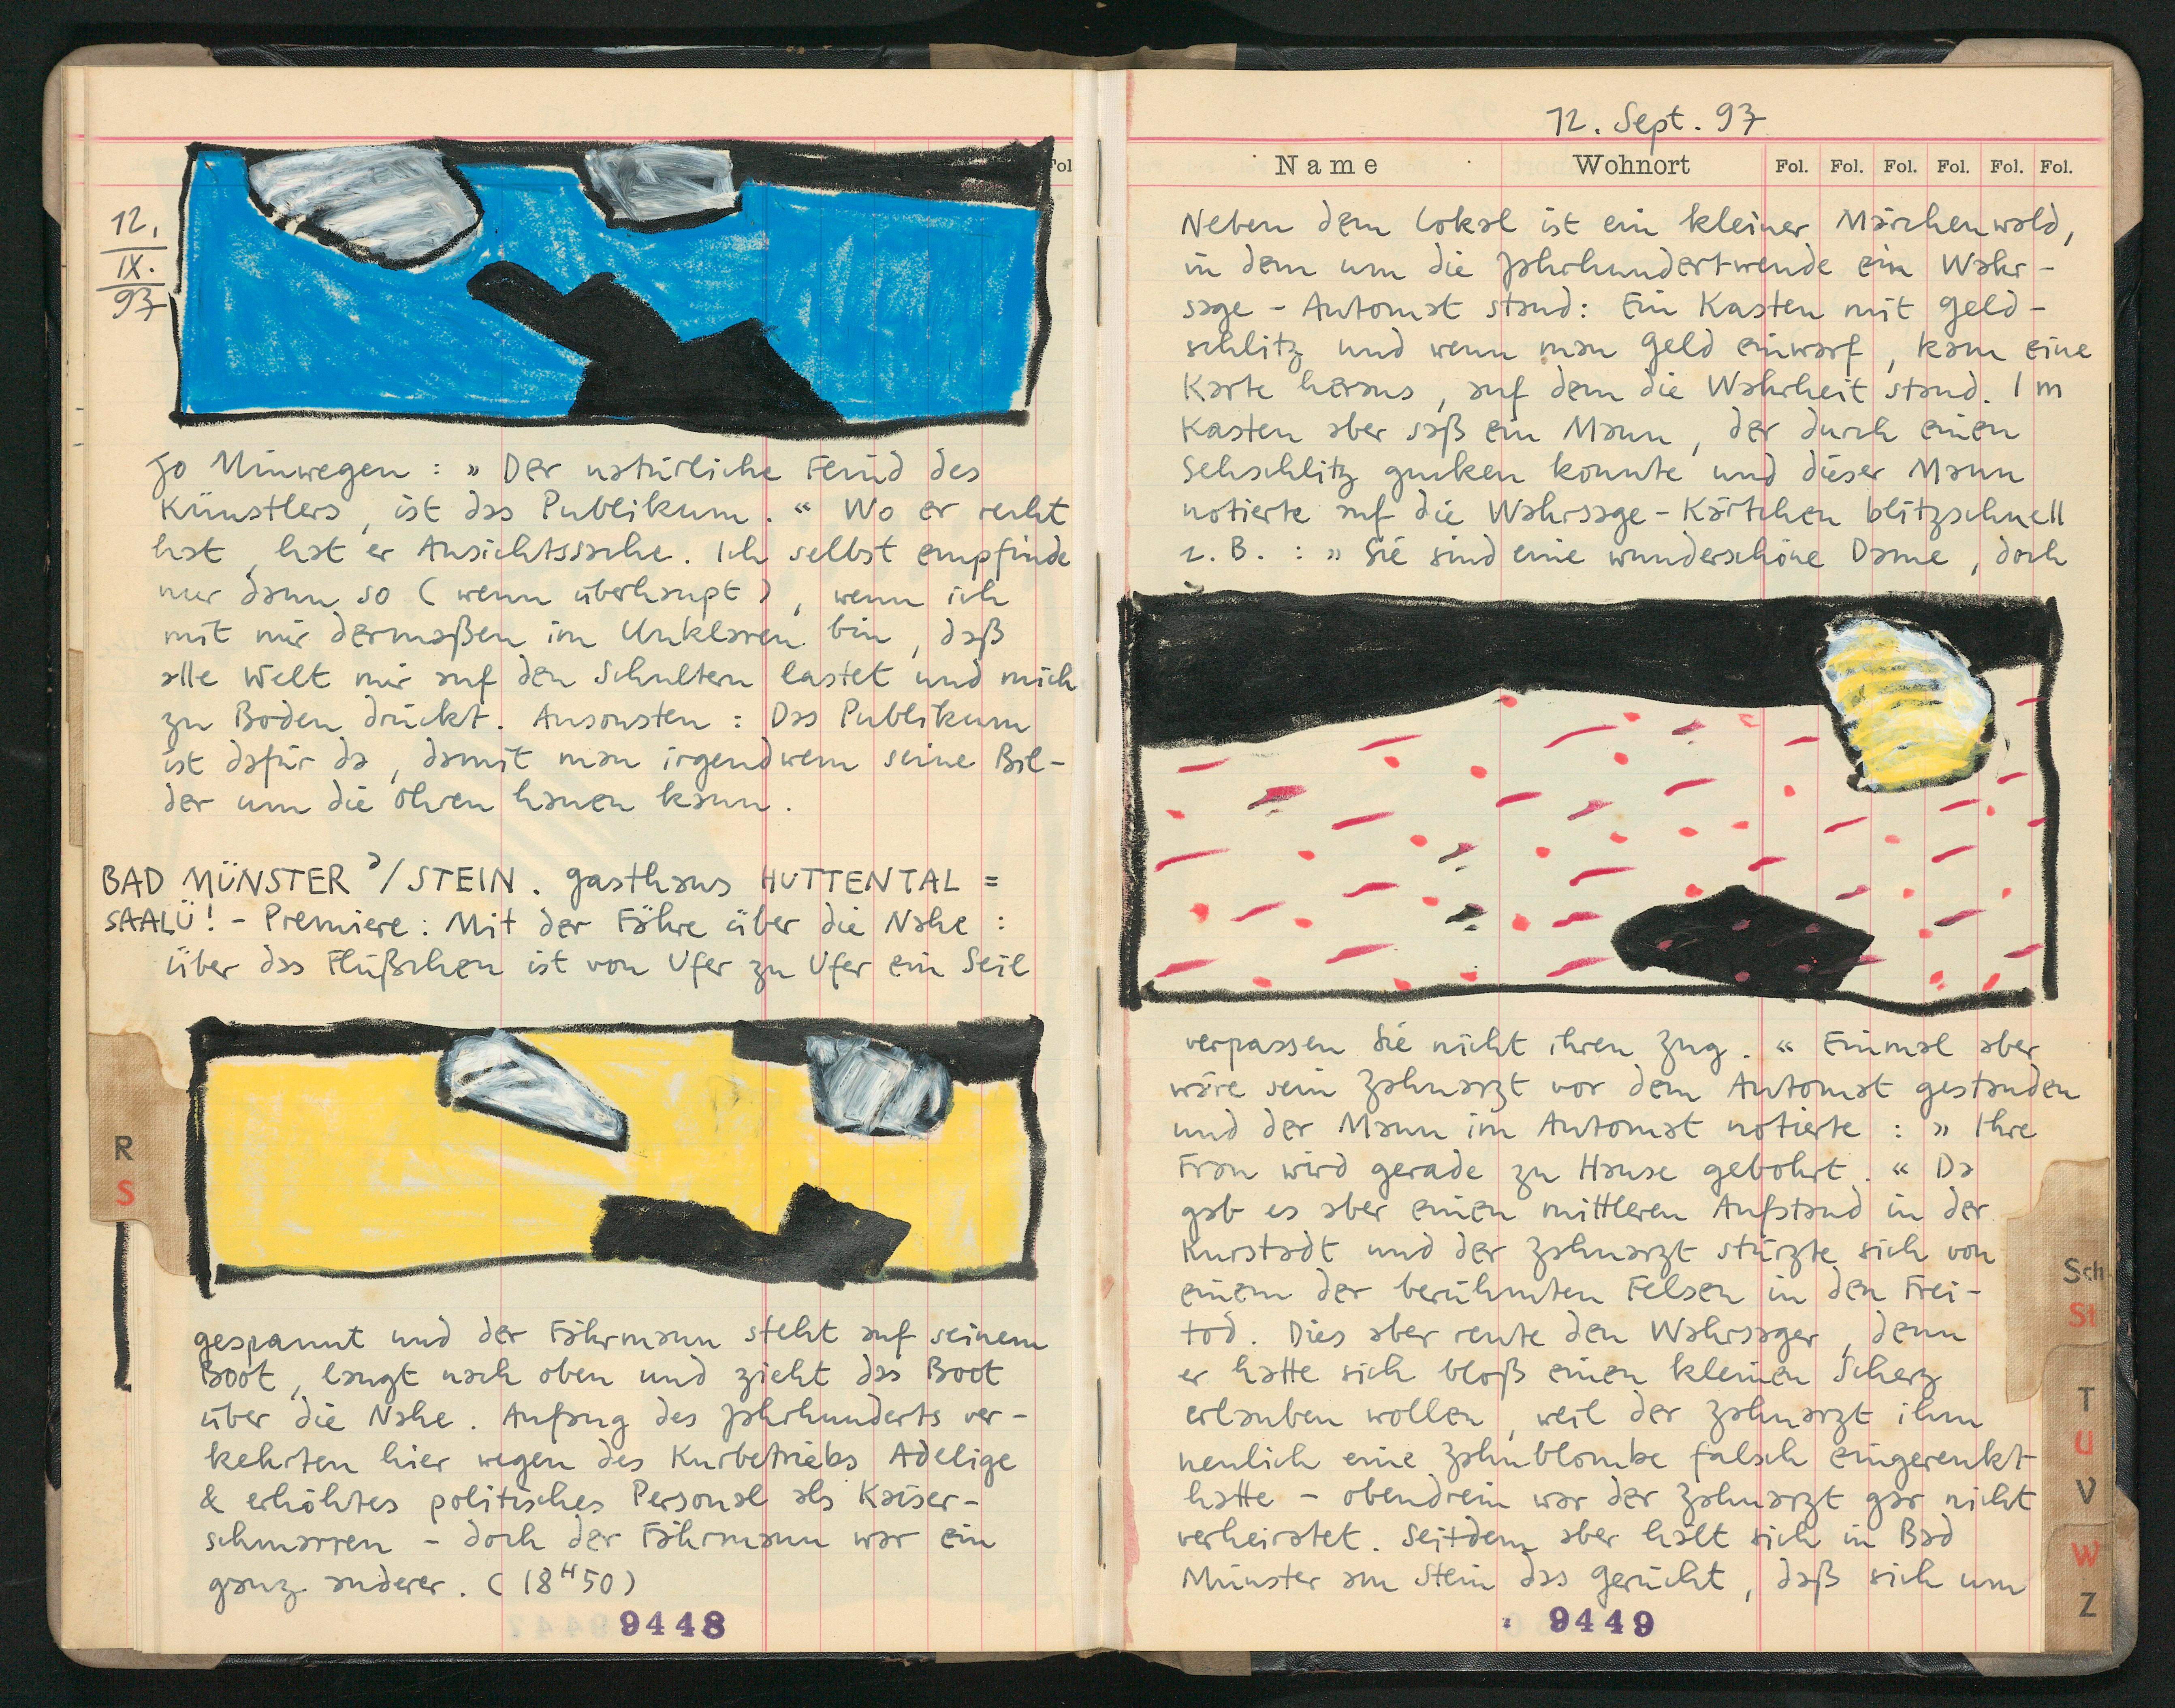 12.
IX.
97
Fol
Jo Minwegen : » Der natürliche Feind des
Künstlers, ist das Publikum. « Wo er recht
hat, hat er Ansichtssache. Ich selbst empfinde
nur dann so (wenn überhaupt), wenn ich
mit mir dermaßen im Unklaren bin, daß
alle Welt mir auf den Schultern lastet und mich
zu Boden drückt. Ansonsten : Das Publikum
ist dafür da, damit man irgendwem seine Bil-
der um die Ohren hauen kann.
BAD MÜNSTER a/STEIN. Gasthaus HUTTENTAL =
SAALÜ! - Premiere : Mit der Fähre über die Nahe :
Über das Flüßchen ist von Ufer zu Ufer ein Seil
R
S
gespannt und der Fährmann steht auf seinem
Boot, langt nach oben und zieht das Boot
über die Nahe. Anfang des Jahrhunderts ver-
kehrten hier wegen des Kurbetriebs Adelige
& erhöhtes politisches Personal als Kaiser-
schmarren - doch der Fährmann war ein
ganz anderer. (18H50)
9448
12. Sept. 97
Name Wohnort Fol. Fol. Fol. Fol. Fol. Fol.
Neben dem Lokal ist ein kleiner Märchenwald,
in dem um die Jahrhundertwende ein Wahr-
sage - Automat stand: Ein Kasten mit Geld-
schlitz und wenn man Geld einwarf, kam eine
Karte heraus, auf dem die Wahrheit stand. Im
Kasten aber saß ein Mann, der durch einen
Sehschlitz gucken konnte und dieser Mann
notierte auf die Wahrsage-Kärtchen blitzschnell
z. B. : » Sie sind eine wunderschöne Dame, doch
verpassen Sie nicht ihren Zug. « Einmal aber
wäre sein Zahnarzt vor dem Automat gestanden
und der Mann im Automat notierte : » Ihre
Frau wird gerade zu Hause gebohrt. « Da
gab es aber einen mittleren Aufstand in der
Kurstadt und der Zahnarzt stürzte sich von
einem der berühmten Felsen in den Frei-
tod. Dies aber reute den Wahrsager, denn
er hatte sich bloß einen kleinen Scherz
erlauben wollen, weil der Zahnarzt ihm
neulich eine Zahnblombe falsch eingerenkt
hatte - obendrein war der Zahnarzt gar nicht
verheiratet. Seitdem aber hält sich in Bad
Münster am Stein das Gerücht, daß sich um
9449
Sch
St
T
U
V
W
Z